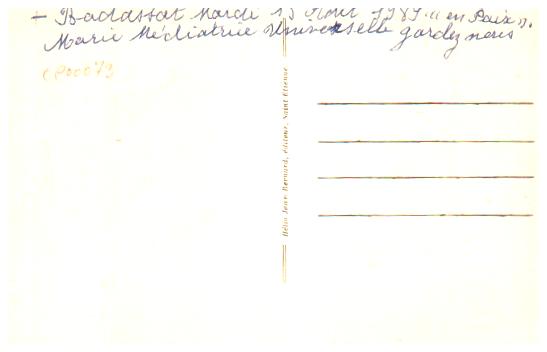 - Badassat Mardi 15 Août 1989. « en Paix ».
Marie Médiatrice Universelle gardez nous
CP00073
Hélio Jean Bernard, éditeur, Saint Etienne